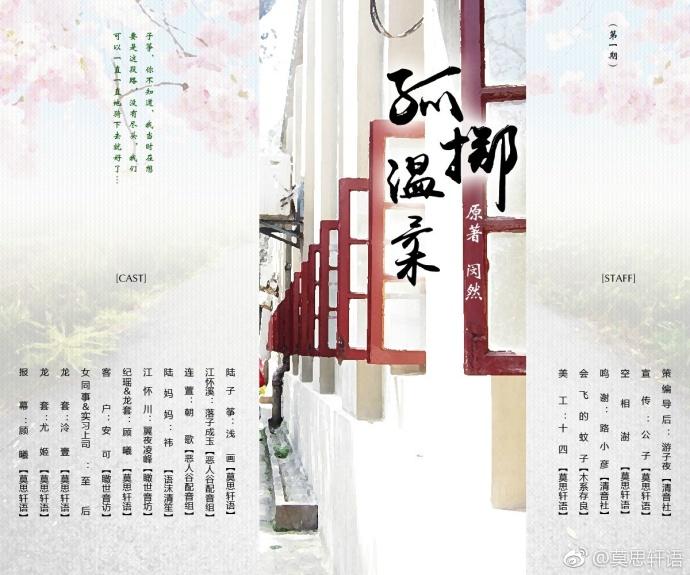 （第一期）
孤掷
温柔
原著 闵然
子筝，你不知道，我当时在想
要是这段路 没有尽头，我们
可以一直一直地骑下去就好了…
[CAST]
陆子筝：浅画【莫思轩语】
江怀溪：落子成玉【恶人谷配音组】
连萱：朝歌【恶人谷配音组】
陆妈妈：祎【语沫清笙】
江怀川：翼夜凌峰【瞰世音坊】
纪瑶&龙套：顾曦【莫思轩语】
客户：安可【瞰世音访】
女同事&实习上司：至后
龙套：泠壹【莫思轩语】
龙套：尤姬【莫思轩语】
报幕：顾曦【莫思轩语】
[STAFF]
策编导后：游子夜【清音社】
宣传：公子【莫思轩语】
空相澍【莫思轩语】
鸣谢：路小彦【清音社】
会飞的蚊子【木系存良】
美工：十四【莫思轩语】
@莫思轩语